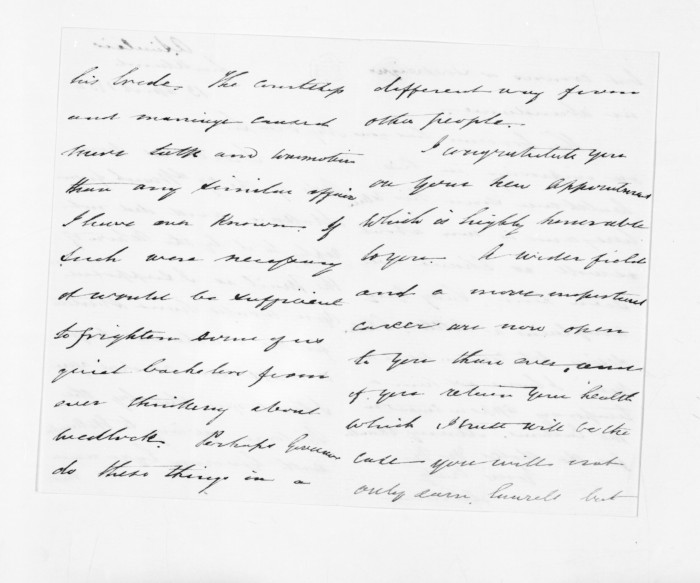 his bride. The courtship
and marriage caused
more talk and commotion
than any similar affair
I have ever known. If
such were necessary
it would be sufficient
to frighten some of us
quiet bachelors from
ever thinking about
wedlock. Perhaps Governors
do these things in a
different way from
other people.
I congratulate you
on your new appointment
which is highly honorable
to you. A wider field
and a more important
career are now open
to you than ever, and
if you retain your health
which I trust will be the
case you will not
only earn laurels but